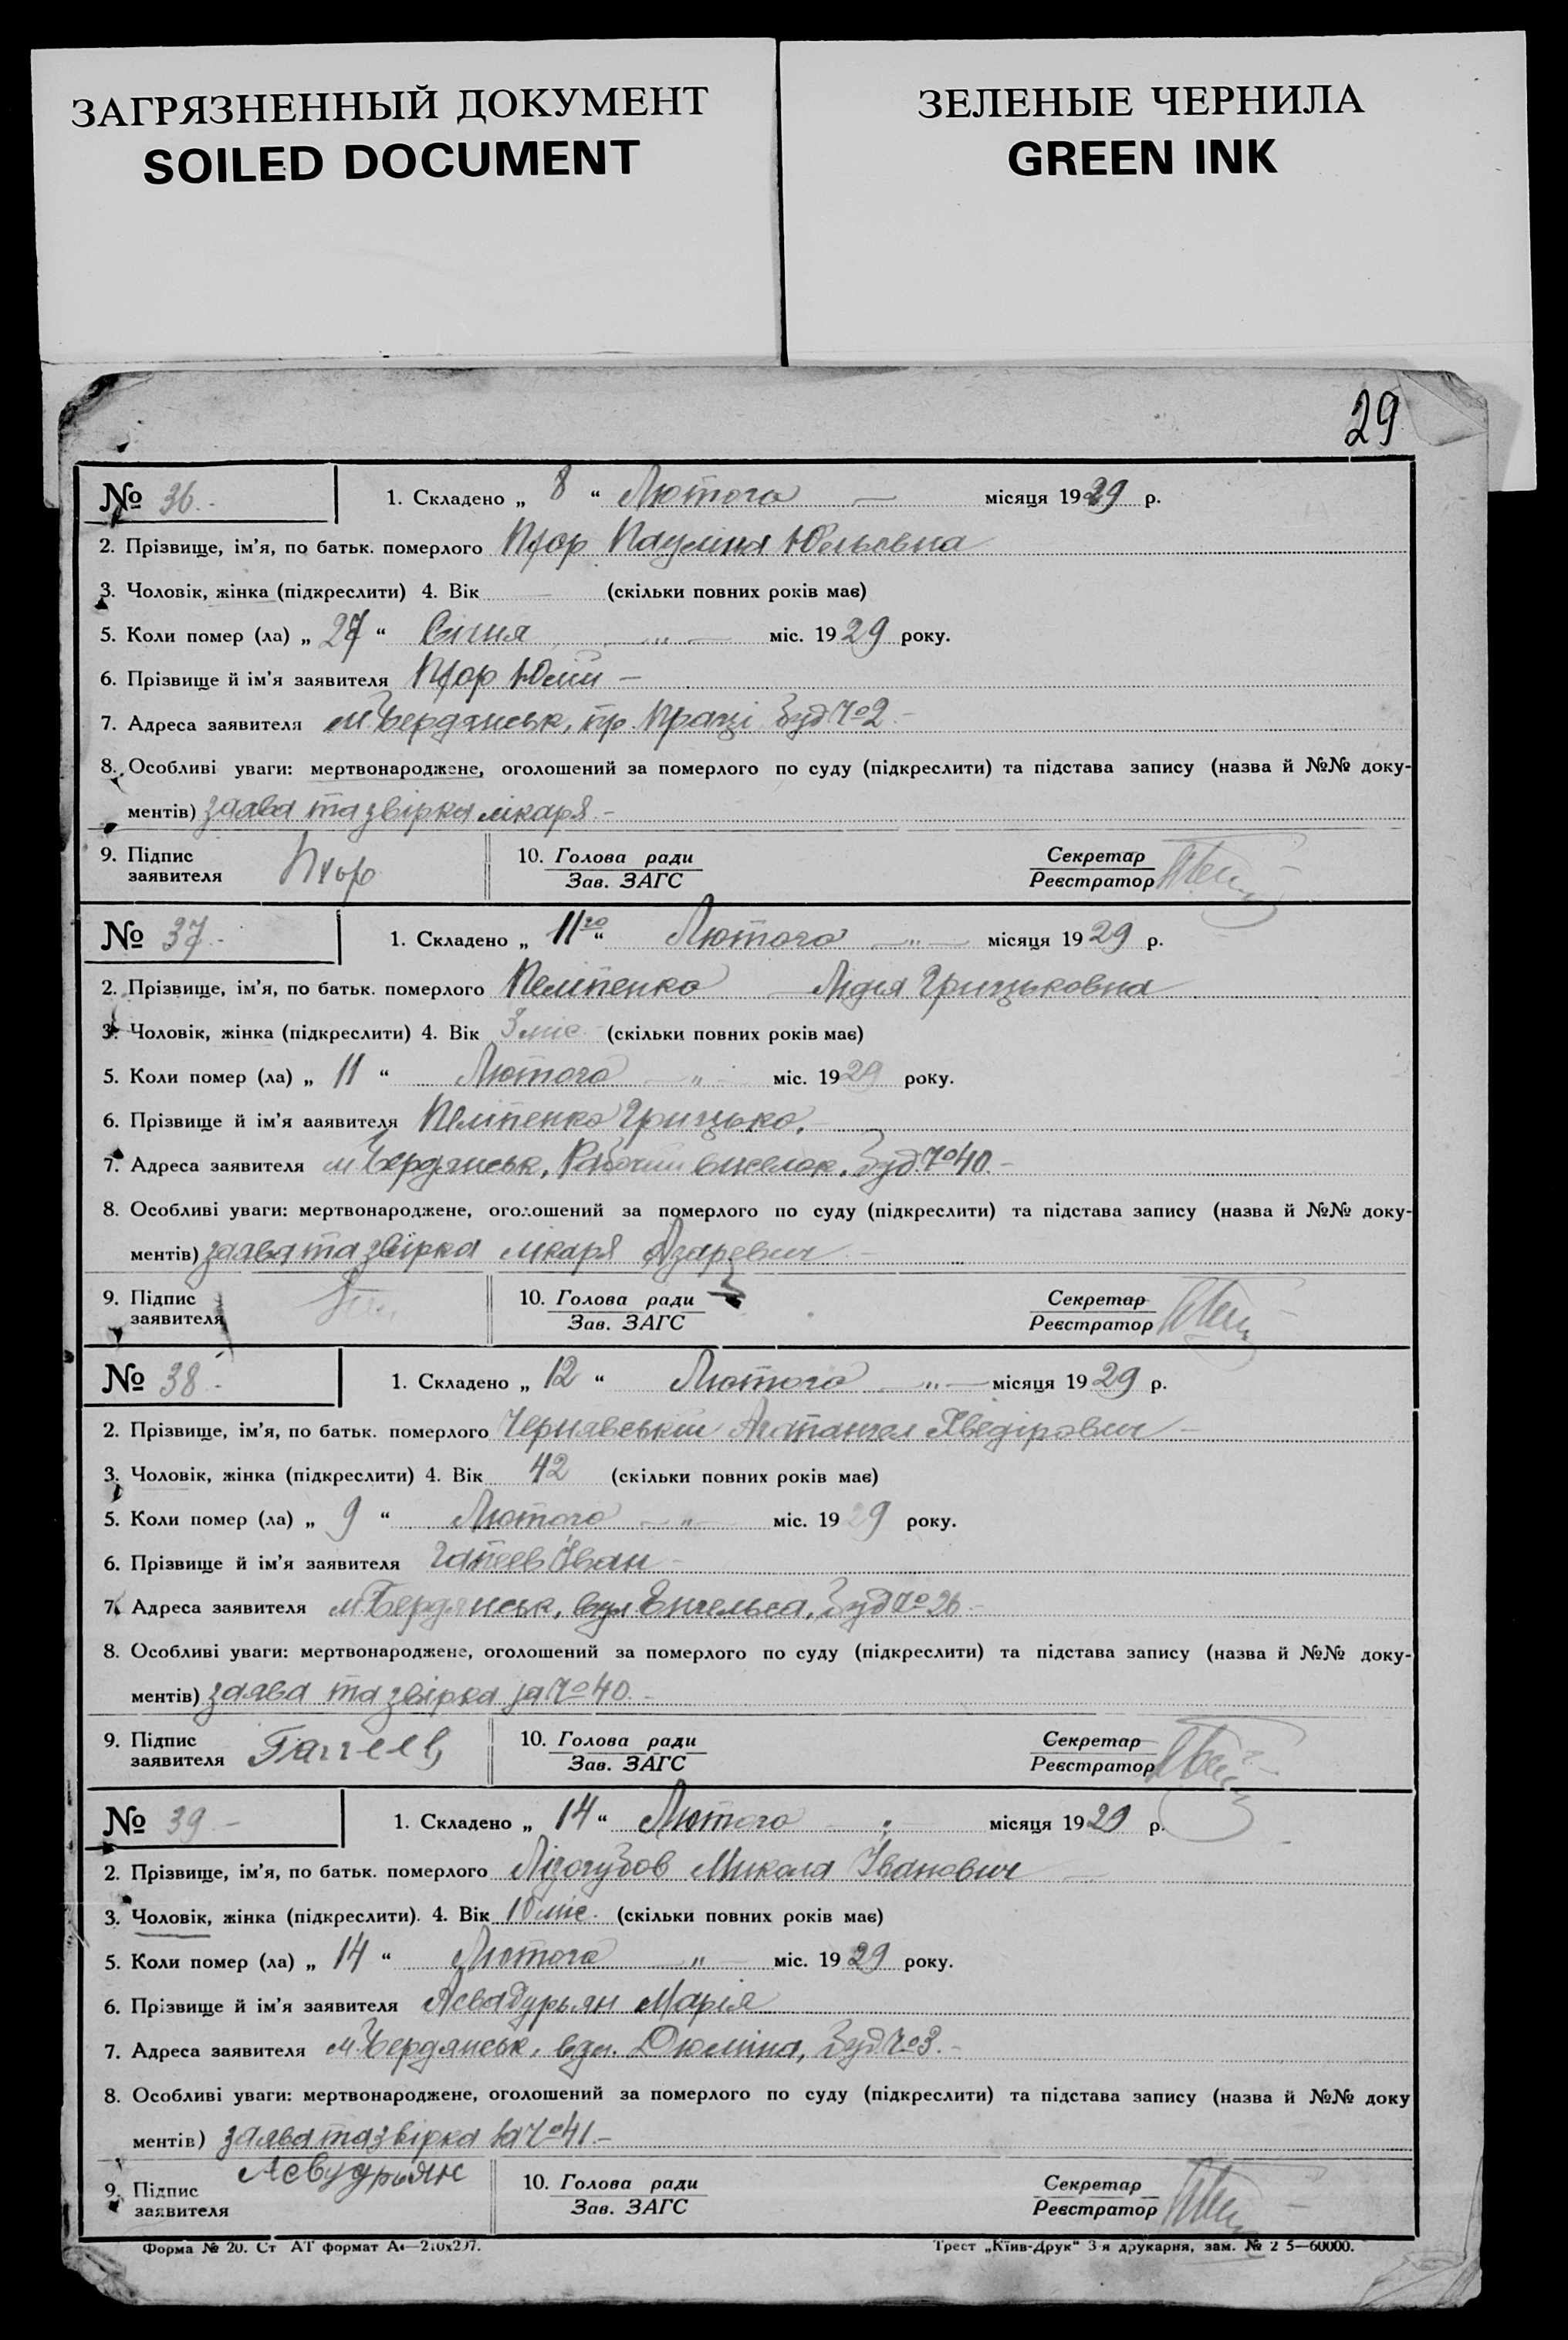 ЗАГРЯЗНЕННЫЙ ДОКУМЕНТ
SOILED DOCUMENT
ЗЕЛЕНЫЕ ЧЕРНИЛА
GREEN INK
29
№ 36.- 1. Складено „ 8 “ Лютого — місяця 1929 р.
2. Прізвище, ім'я, по батьк. померлого Пфор Пауліна Юльевна
3. Чоловік, жінка (підкреслити) 4. Вік — (скільки повних років має)
5. Коли помер (ла) „ 27 “ Січня — „ — міс. 1929 року.
6. Прізвище й ім'я заявителя Пфор Юлій —
7. Адреса заявителя м. Бердянськ, пр. Праці буд № 2 -
8. Особливі уваги: мертвонароджене, оголошений за померлого по суду (підкреслити) та підстава запису (назва й №№ доку-
ментів) заява та звірка лікаря. -
9. Підпис заявителя Пфор 10. Голова ради Зав. ЗАГС Секретар Реєстратор
№ 37.- 1. Складено „ 11го “ Лютого — „ — місяця 1929 р.
2. Прізвище, ім'я, по батьк. померлого Пеліпенко Лидія Грицьковна
3. Чоловік, жінка (підкреслити) 4. Вік 3 міс. (скільки повних років має)
5. Коли помер (ла) „ 11 “ Лютого — „ — міс. 1929 року.
6. Прізвище й ім'я ааявителя Пеліпенко Грицько. -
7. Адреса заявителя м. Бердянськ, Рабочий виселок, буд. № 40. -
8. Особливі уваги: мертвонароджене, оголошений за померлого по суду (підкреслити) та підстава запису (назва й №№ доку-
ментів) заява та звірка лікаря Азаревич -
9. Підпис заявителя 10. Голова ради Зав. ЗАГС Секретар Реєстратор
№ 38.- 1. Складено „ 12 “ Лютого — „ — місяця 1929 р.
2. Прізвище, ім'я, по батьк. померлого Чернявський Агатангел Хведірович -
3. Чоловік, жінка (підкреслити) 4. Вік 42 (скільки повних років має)
5. Коли помер (ла) „ 9 “ Лютого — „ — міс. 1929 року.
6. Прізвище й ім'я заявителя Гапеев Іван -
7. Адреса заявителя м. Бердянськ, вул Енгельса, буд № 26 -
8. Особливі уваги: мертвонароджене, оголошений за померлого по суду (підкреслити) та підстава запису (назва й №№ доку-
ментів) заява та звірка за № 40. -
9. Підпис заявителя Гапеев 10. Голова ради Зав. ЗАГС Секретар Реєстратор
№ 39 - 1. Складено „ 14 “ Лютого — „ — місяця 1929 р.
2. Прізвище, ім'я, по батьк. померлого Лізогубов Микола Іванович
3. Чоловік, жінка (підкреслити). 4. Вік 10 міс. (скільки повних років має)
5. Коли помер (ла) „ 14 “ Лютого — „ — міс. 1929 року.
6. Прізвище й ім'я заявителя Асвадурьян Марія
7. Адреса заявителя м. Бердянськ, вул. Дюміна, буд № 3. -
8. Особливі уваги: мертвонароджене, оголошений за померлого по суду (підкреслити) та підстава запису (назва й №№ доку
ментів) заява та звірка за № 41. -
9. Підпис заявителя Асвудрьянс 10. Голова ради Зав. ЗАГС Секретар Реєстратор
Форма № 20. Ст АТ формат А4—210x297. Трест „Київ-Друк“ 3 я друкарня, зам. № 2 5—60000.